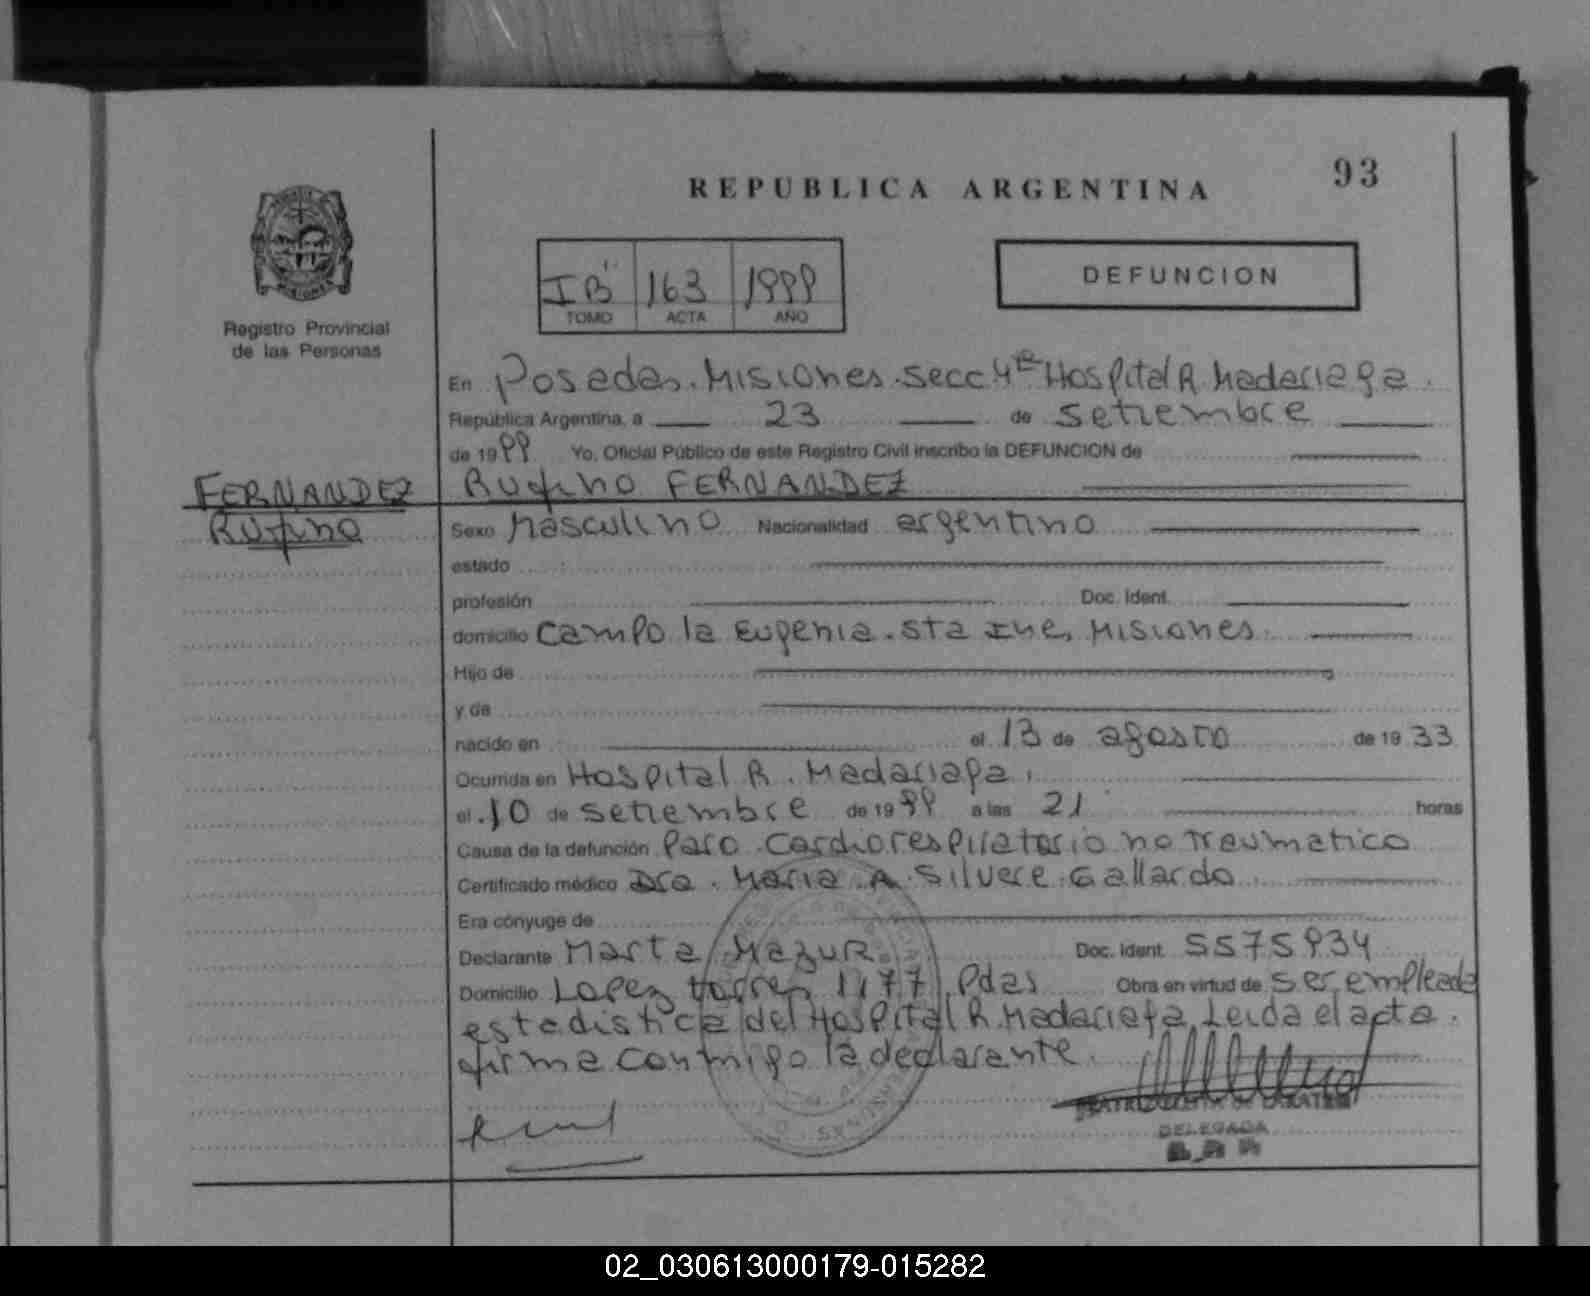 93
REPUBLICA ARGENTINA
IB" 163 1999
TOMO ACTA AÑO
DEFUNCION
MISIONES
Registro Provincial
de las Personas
En Posadas. Misiones. Secc 4ta Hospital R. Madariaga.
República Argentina, a 23 de Setiembre
de 1999 Yo, Oficial Público de este Registro Civil inscribo la DEFUNCION de
FERNANDEZ Rufino FERNANDEZ
Rufino Sexo Masculino Nacionalidad argentino
estado
profesión Doc. Ident.
domicilio Campo la Eugenia. Sta Ines, Misiones.
Hijo de
y de
nacido en el 13 de agosto de 1933
Ocurrida en Hospital R. Madariaga.
el 10 de Setiembre de 1999 a las 21 horas
Causa de la defunción Paro Cardiorespiratorio no Traumatico
Certificado médico Dra. Maria A. Silvere Gallardo.
Era cónyuge de
Declarante Marta Mazur. Doc. Ident. 5575934
Domicilio Lopez torres 1177. Pdas Obra en virtud de Ser empleada
estadistica del Hospital R. Madariaga, Leida el acta.
firma conmigo la declarante.
DELEGADA
02_030613000179-015282